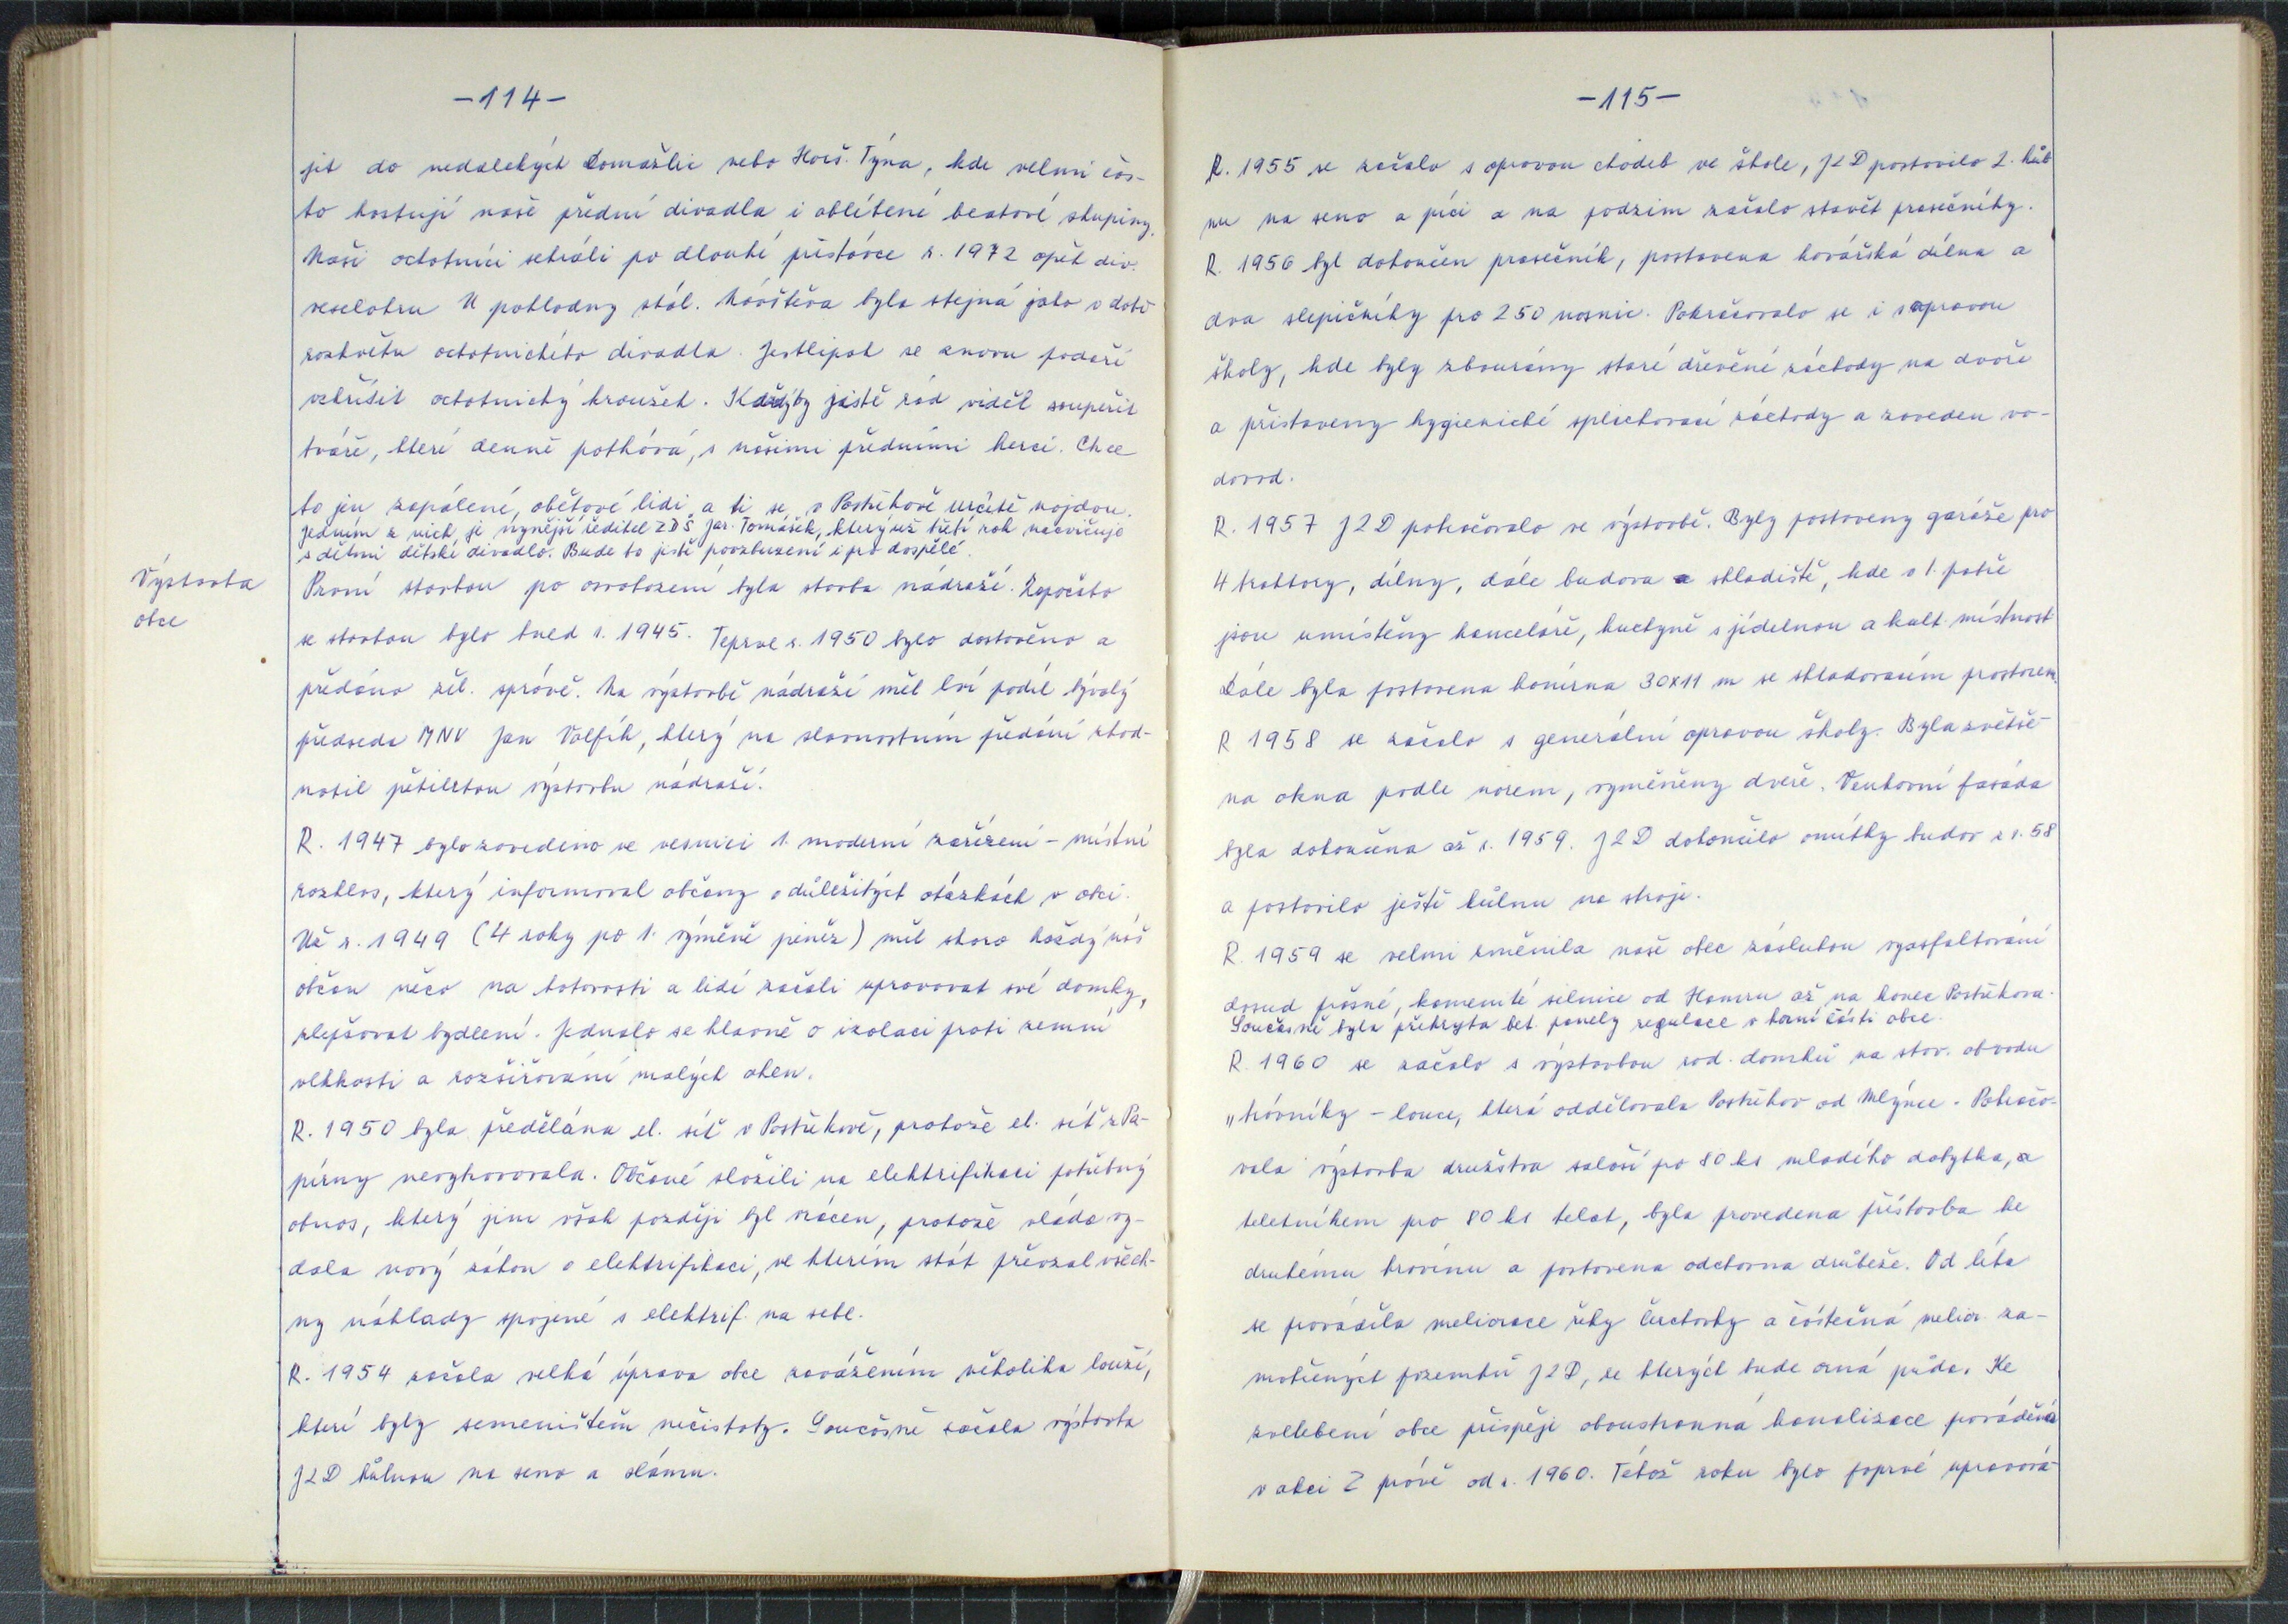 -114-
jít do nedalekých Domažlic nebo Horš. Týna, kde velmi čas-
to hostují naše přední divadla i oblíbené beatové skupiny.
Naši ochotníci sehráli po dlouhé přestávce r. 1972 opět div.
veselohru U pokladny stál. Návštěva byla stejná jako v době
rozkvětu ochotnického divadla. Jestlipak se znovu podaří
vzkřísit ochotnický kroužek. Každý by jistě rád viděl soupeřit
tváře, které denně potkává, s našimi předními herci. Chce
to jen zapálené, obětavé lidi a ti se v Postřekově určitě najdou.
Jedním z nich je nynější ředitel ZDŠ Jar. Tomášek, který už třetí rok nacvičuje
s dětmi dětské divadlo. Bude to jistě povzbuzení i pro dospělé.
Výstavba
obce
První stavbou po osvobození byla stavba nádraží. Započato
se stavbou bylo hned r. 1945. Teprve r. 1950 bylo dostavěno a
předáno žel. správě. Na výstavbě nádraží měl lví podíl bývalý
předseda MNV Jan Volfík, který na slavnostním předání zhod-
notil pětiletou výstavbu nádraží.
R. 1947 bylo zavedeno ve vesnici 1. moderní zařízení - místní
rozhlas, který informoval občany o důležitých otázkách v obci.
Už r. 1949 (4 roky po 1. výměně peněz) měl skoro každý náš
občan něco na hotovosti a lidé začali upravovat své domky,
zlepšovat bydlení. Jednalo se hlavně o izolaci proti zemní
vlhkosti a rozšiřování malých oken.
R. 1950 byla předělána el. síť v Postřekově, protože el. síť z Pa-
pírny nevyhovovala. Občané složili na elektrifikaci potřebný
obnos, který jim však později byl vrácen, protože vláda vy-
dala nový zákon o elektrifikaci, ve kterém stát převzal všech-
ny náklady spojené s elektrif. na sebe.
R. 1954 začala velká úprava obce zavážením několika louží,
které byly semeništěm nečistoty. Současně začala výstavba
JZD kůlnou na seno a slámu.
-115-
R. 1955 se začalo s opravou chodeb ve škole, JZD postavilo 2. kůl
nu na seno a píci a na podzim začalo stavět prasečníky.
R. 1956 byl dokončen prasečník, postavena kovářská dílna a
dva slepičníky pro 250 nosnic. Pokračovalo se i s opravou
školy, kde byly zbourány staré dřevěné záchody na dvoře
a přistaveny hygienické splachovací záchody a zaveden vo-
dovod.
R. 1957 JZD pokračovalo ve výstavbě. Byly postaveny garáže pro
4 traktory, dílny, dále budova a skladiště, kde v 1. patře
jsou umístěny kanceláře, kuchyně s jídelnou a kult. místnost
Dále byla postavena konírna 30x11 m se skladovacím prostorem.
R 1958 se začalo s generální opravou školy. Byla zvětše-
na okna podle norem, vyměněny dveře. Venkovní fasáda
byla dokončena až r. 1959. JZD dokončilo omítky budov z r. 58
a postavilo ještě kůlnu na stroje.
R. 1959 se velmi změnila naše obec zásluhou vyasfaltování
dosud prašné, kamenité silnice od Hamru až na konec Postřekova.
Současně byla překryta bet. panely regulace v horní části obce.
R. 1960 se začalo s výstavbou rod. domků na stav. obvodu
„trávníky - louce, která oddělovala Postřekov od Mlýnce. Pokračo-
vala výstavba družstva salaší po 80 ks mladého dobytka, a
teletníkem pro 80 ks telat, byla provedena přístavba ke
druhému kravínu a postavena odchovna drůbeže. Od léta
se prováděla meliorace řeky Čerchovky a částečná melior. za-
mokřených pozemků JZD, ze kterých bude orná půda. Ke
zvelebení obce přispěje oboustranná kanalizace prováděná
v akci Z právě od r. 1960. Téhož roku bylo poprvé upravová-